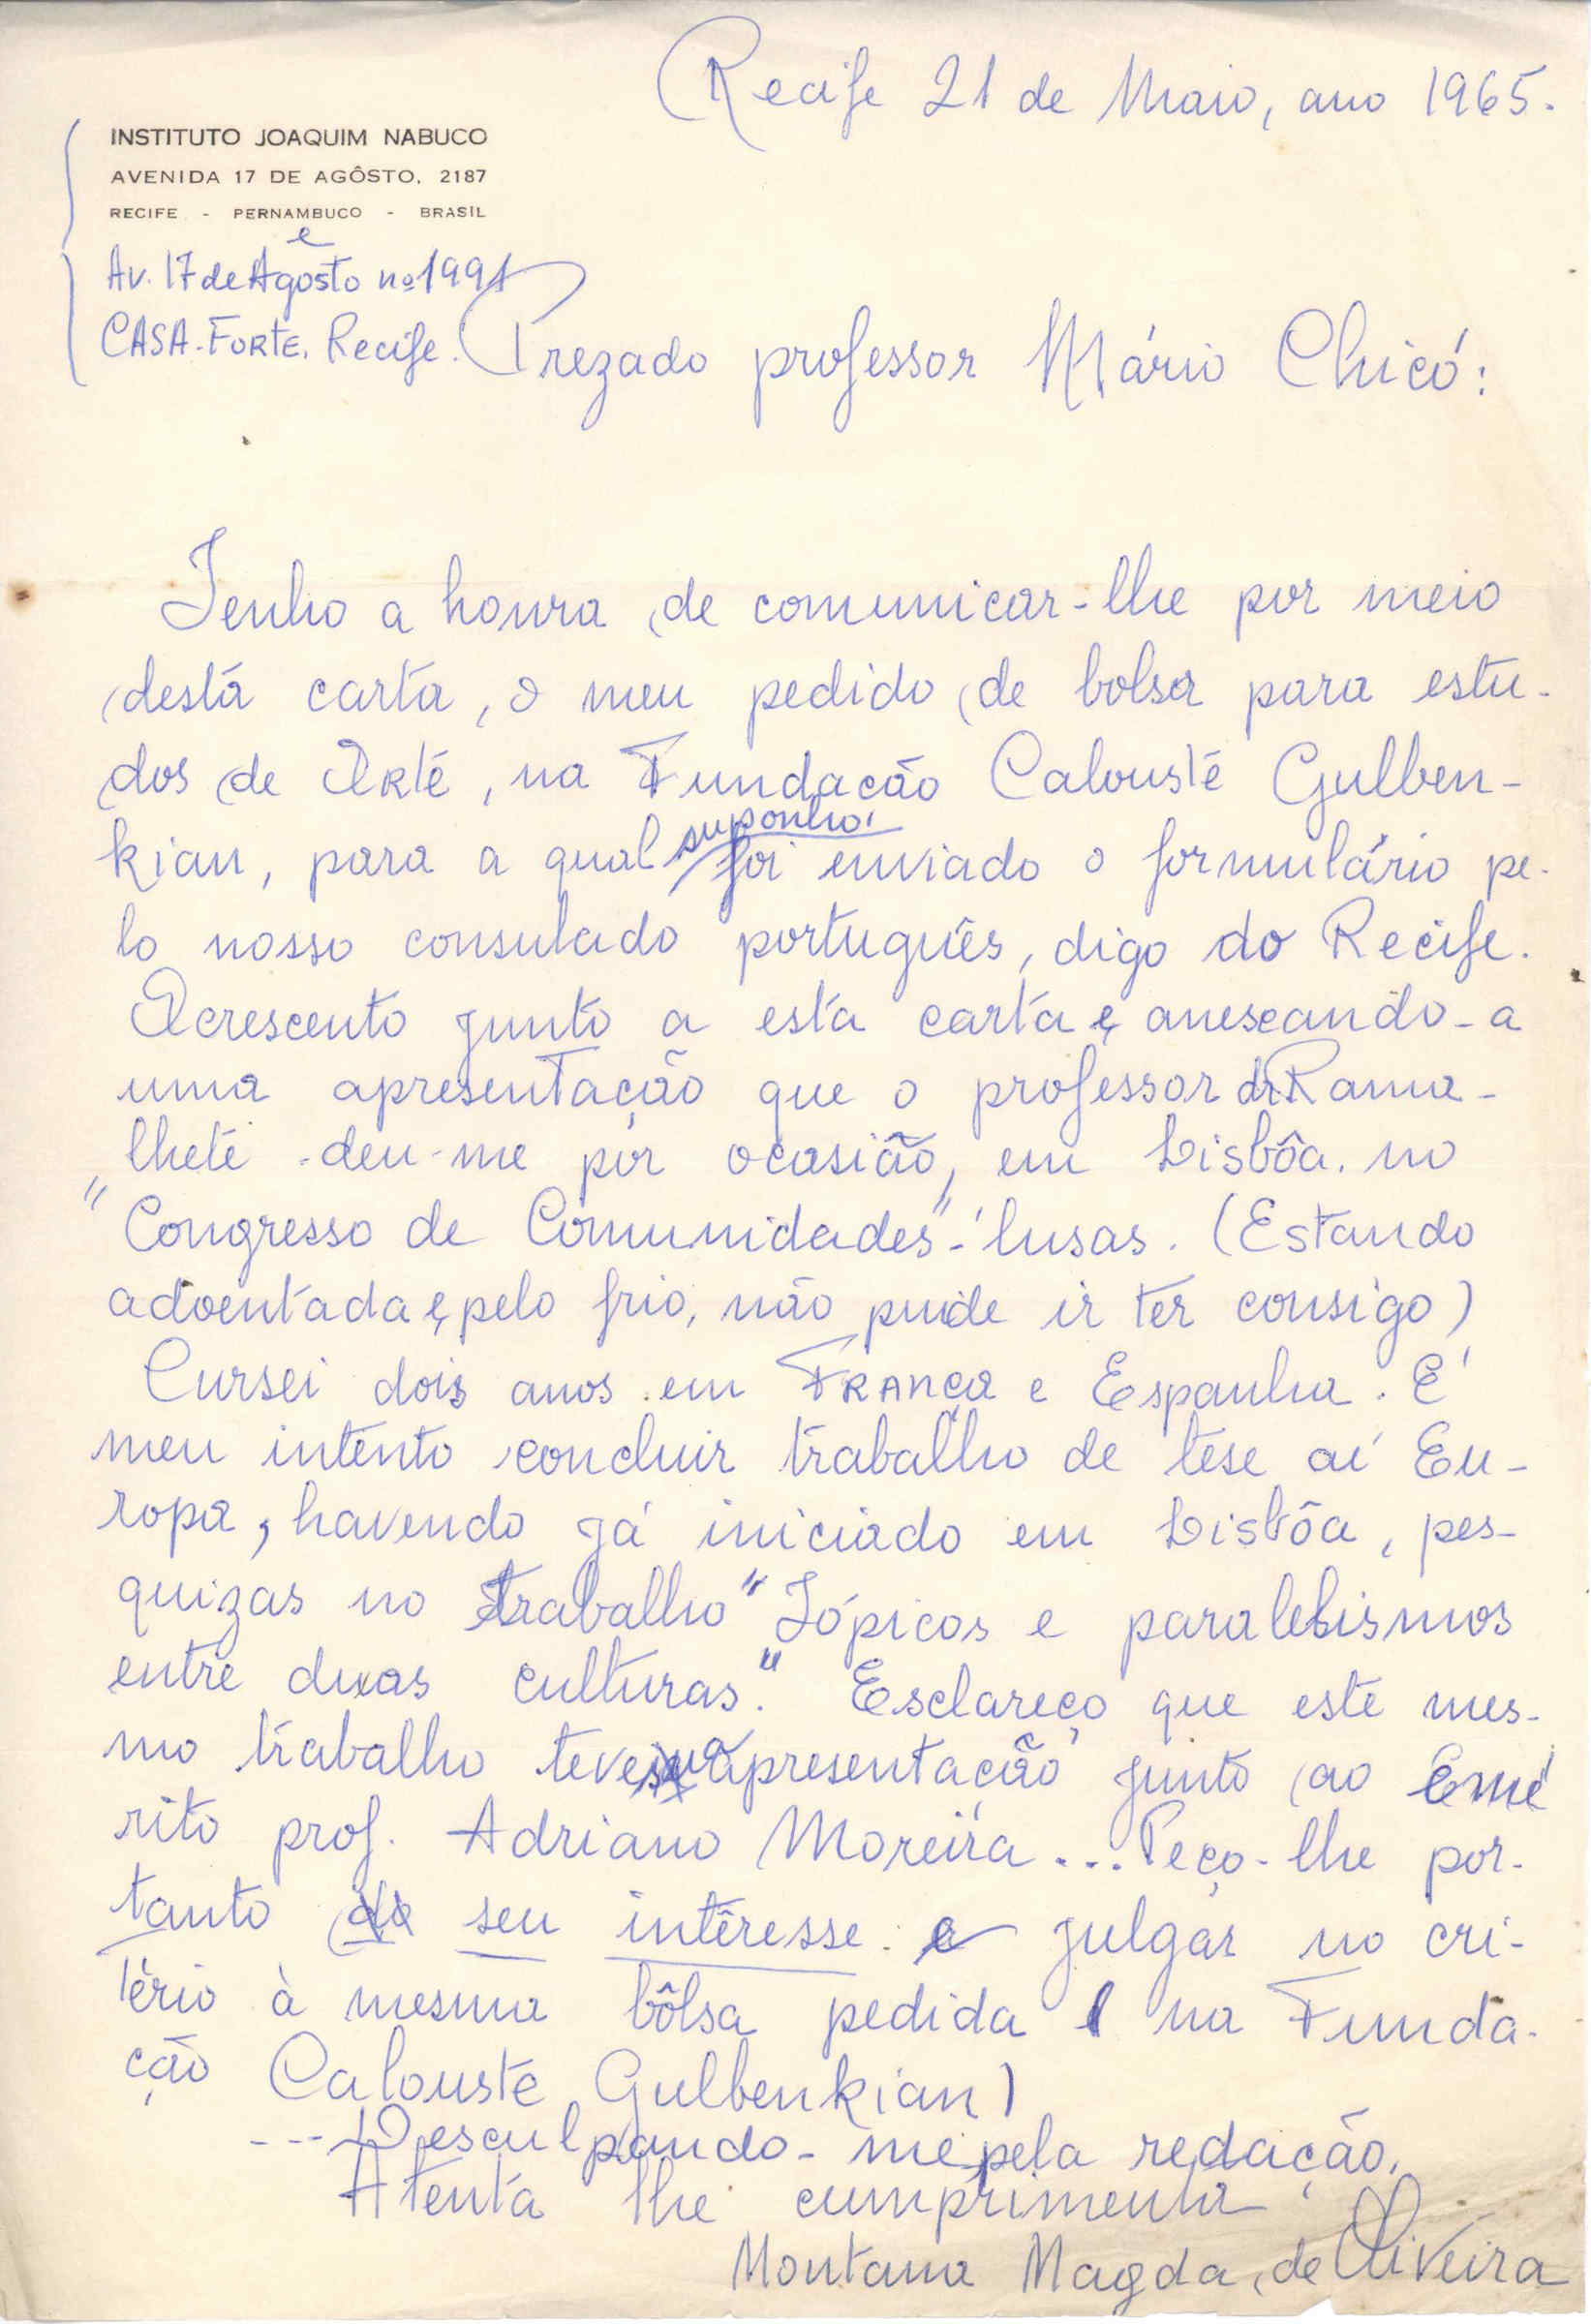 Recife 21 de Maio, ano 1965.
INSTITUTO JOAQUIM NABUCO
AVENIDA 17 DE AGÔSTO, 2187
RECIFE - PERNAMBUCO - BRASIL
e
Av. 17 de Agosto nº 1991
CASA-FORTE. Recife.
Prezado professor Mário Chicó:
Tenho a honra de comunicar-lhe por meio
desta carta, o meu pedido de bolsa para estu-
dos de Arte, na Fundacão Calouste Gulben-
kian, para a qual suponho foi enviado o formulário pe-
lo nosso consulado português, digo do Recife.
Acrescento junto a esta carta e anexando-a
uma apresentação que o professor dr Rama-
lhete deu-me por ocasião, em Lisbôa. no
"Congresso de Comunidades"-lusas. (Estando
adoentada e, pelo frio, não pude ir ter consigo)
Cursei dois anos em França e Espanha. É
meu intento concluir trabalho de tese aí Eu-
ropa, havendo já iniciado em Lisbôa, pes-
quizas no trabalho "Tópicos e paralelismos
entre duas culturas." Esclareço que este mes-
mo trabalho teve apresentação junto ao Emé
rito prof. Adriano Moreira... Peço-lhe por-
tanto seu intêresse. e julgar no cri-
tério à mesma bôlsa pedida ( na Funda-
ção Calouste Gulbenkian)
--- Desculpando-me pela redação.
Atenta lhe cumprimenta
Montana Magda de Oliveira